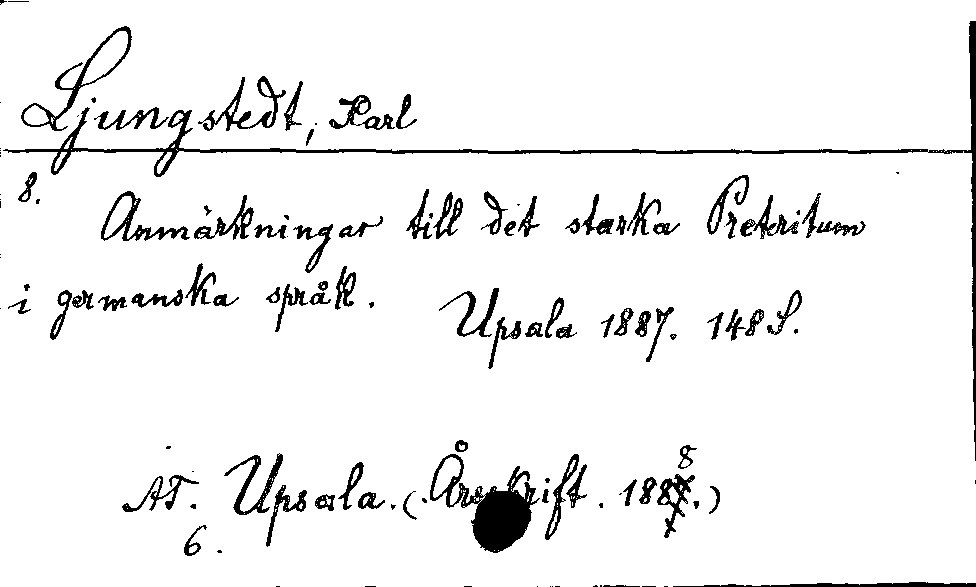 Ljungstedt, Karl
8.
Anmärkningar till det starka Preteritum
i germanska språk.
Upsala 1887. 148 S.
AT. Upsala. (Årsskrift. 1888.)
6.